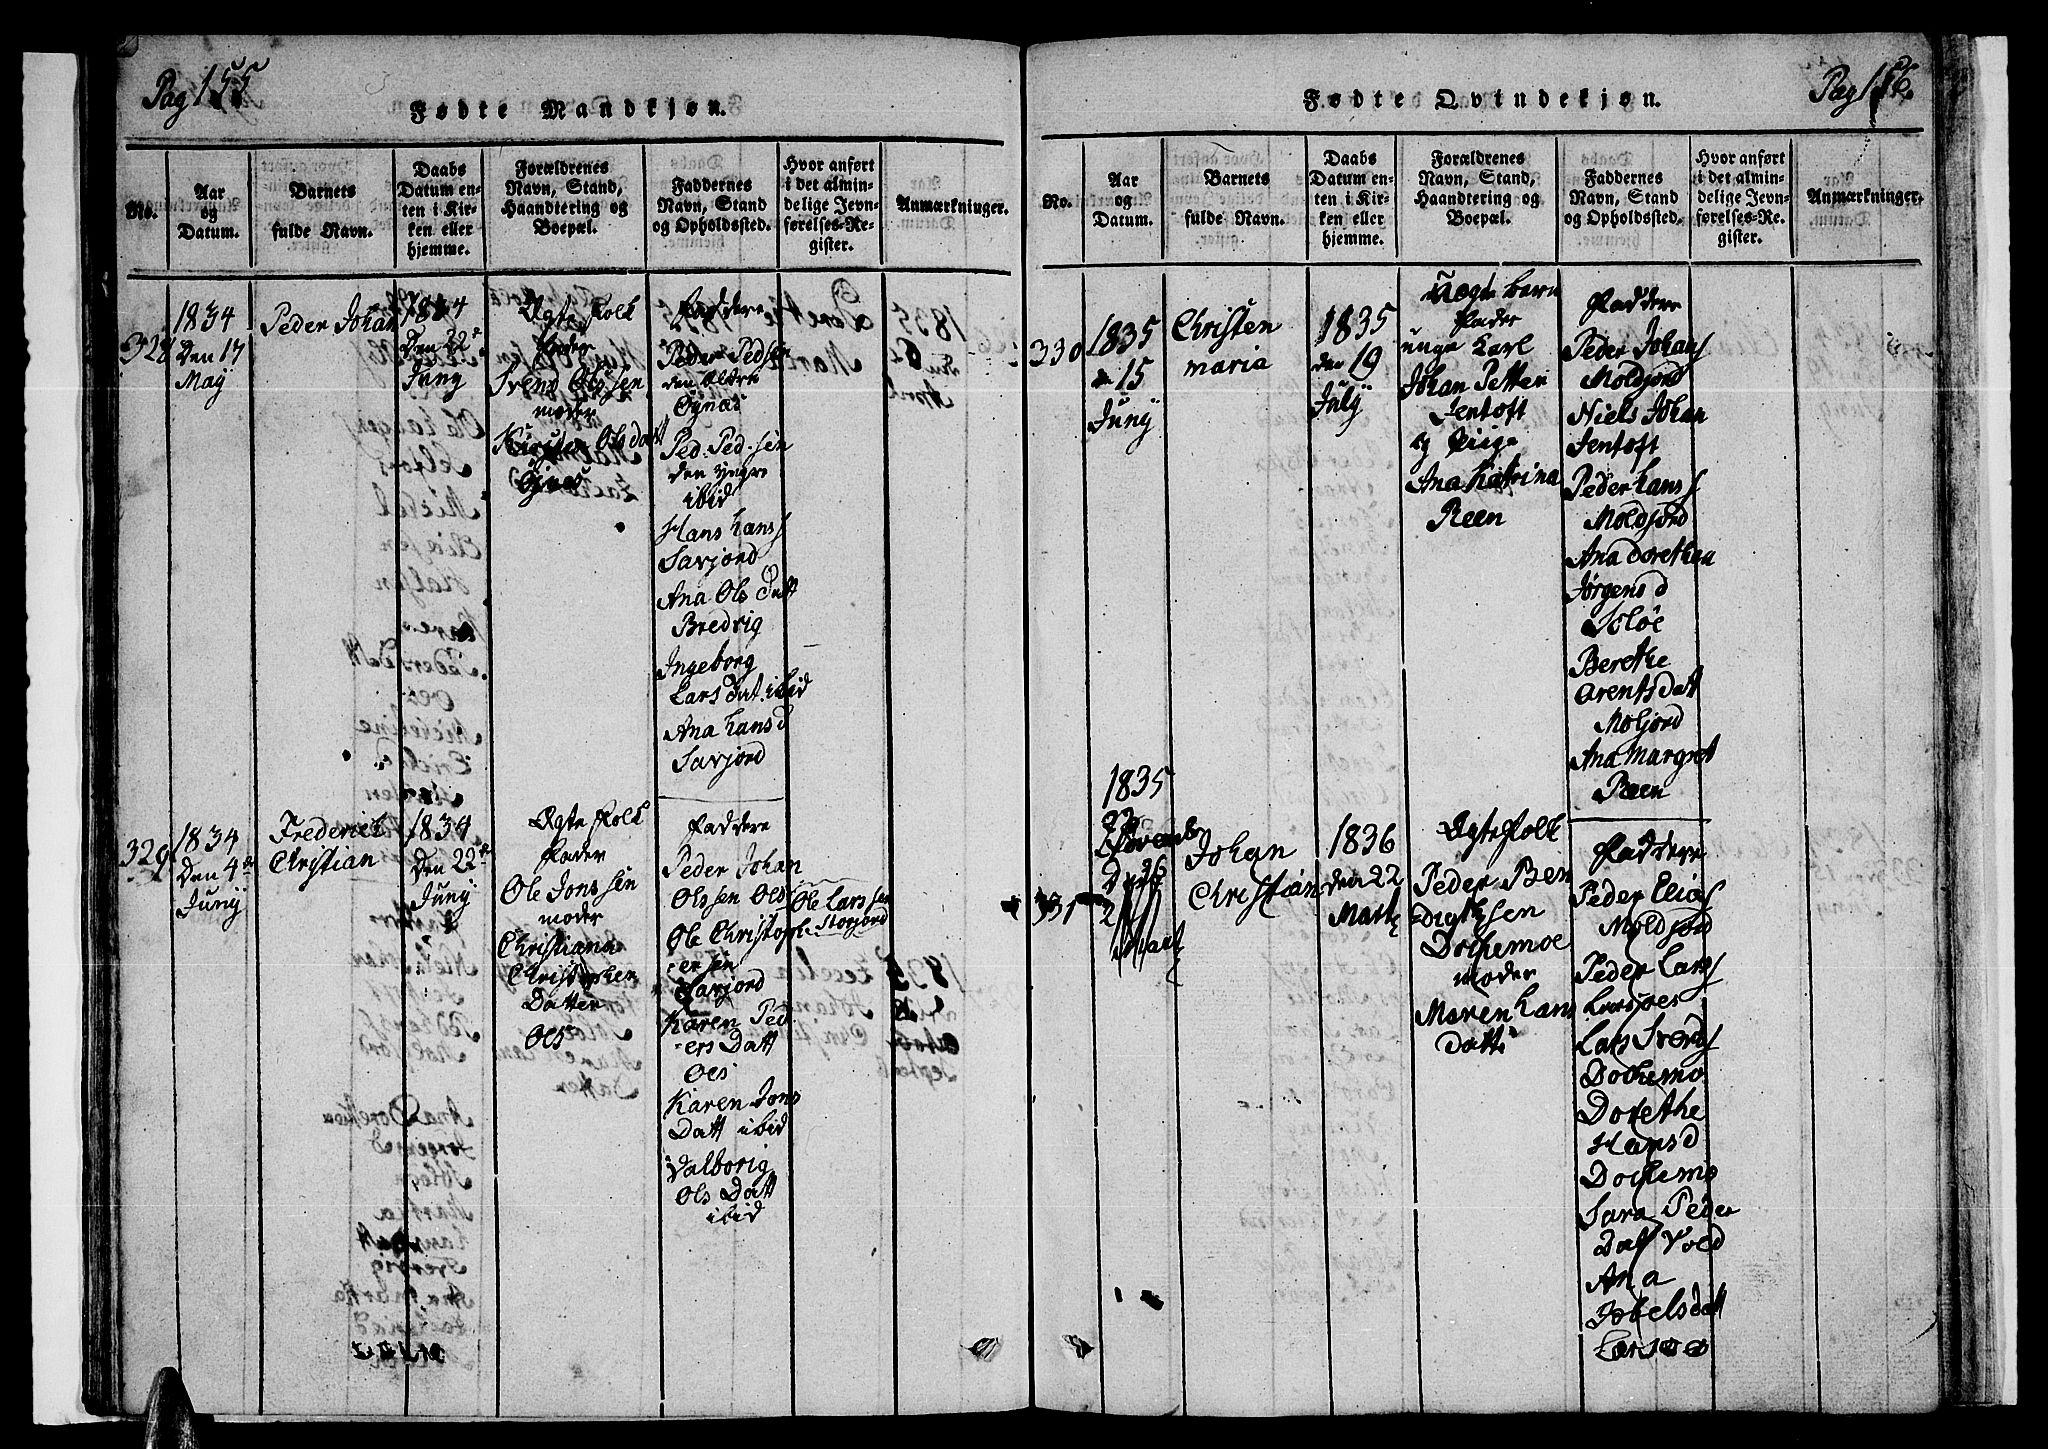 Pag 155
Fødte Mandkjøn.
No.
Aar
og
Datum.
Barnets
fulde Navn.
Daabs
Datum en-
ten i Kir-
ken eller
hjemme.
Forældrenes
Navn, Stand,
Haandtering og
Boepæl.
Faddernes
Navn, Stand
og Opholdssted.
Hvor anført
i det almin-
delige Jevn-
førelses-Re-
gister.
Anmærkninger.
328
1834
Den 17
May
Peder Johan
1834
Den 22
Juny
Ægte Folk
Fader
Svend Olssen
moder
Kirsten Olsdatt
Øjnes
Faddere
Peder Pedsen
den ældre
Øynæs
Ped. Ped-sen
den yngre
ibid
Hans Hans
Savjord
Ana Ols Datt
Bredvig
Ingeborg
Lars Dat. ibid
Ana Hans d
Savjord
329
1834
Den 4de
Juny
Frederich
Christian
1834
Den 22de
Juny
Ægte Folk
Fader
Ole Jonssen
moder
Christiana
Christopher
Datter
Oes
Faddere
Peder Johan
Olssen Oes
Ole Larssen
Ole Christoph
Storjord
ersen
Savjord
Karen Ped
ers Datt
Oes
Karen Jons
Datt ibid
Valborig
Ols Datt
ibid
Pag 156.
Fødte Qvindekjøn.
No.
Aar
og
Datum.
Barnets
fulde Navn.
Daabs
Datum en-
ten i Kir-
ken eller
hjemme.
Forældrenes
Navn, Stand,
Haandtering og
Boepæl.
Faddernes
Navn, Stand
og Opholdssted.
Hvor anført
i det almin-
delige Jevn-
førelses-Re-
gister.
Anmærkninger.
330
1835
de 15
Juny
Christen
maria
1835
den 19
July
Uægte barn
Fader
unge Karl
Johan Petter
Jentoft
og Piige
Ana Katrina
Reen
Faddere
Peder Johans
Moldjord
Niels Johan
Jentoft
Peder Hans
Moldjord
Ana Dorethea
Jørgens d
Soløe
Berethe
Arentsdatt
Moljord
Ana Margret
Reen
331
1835
Johan
Christian
1836
den 22
Martz
Ægte Folk
Peder Ben
digthsen
Dochemoe
moder
Maren Hans
Datt
Faddere
Peder Elias
Moldjord
Peder Lars
Larsoes
Lars Svends
Dochemo
Dorethe
Hans d
Dochemo
Sara Peder
Dat Vold
Ana
Johelsdatt
Larsoes